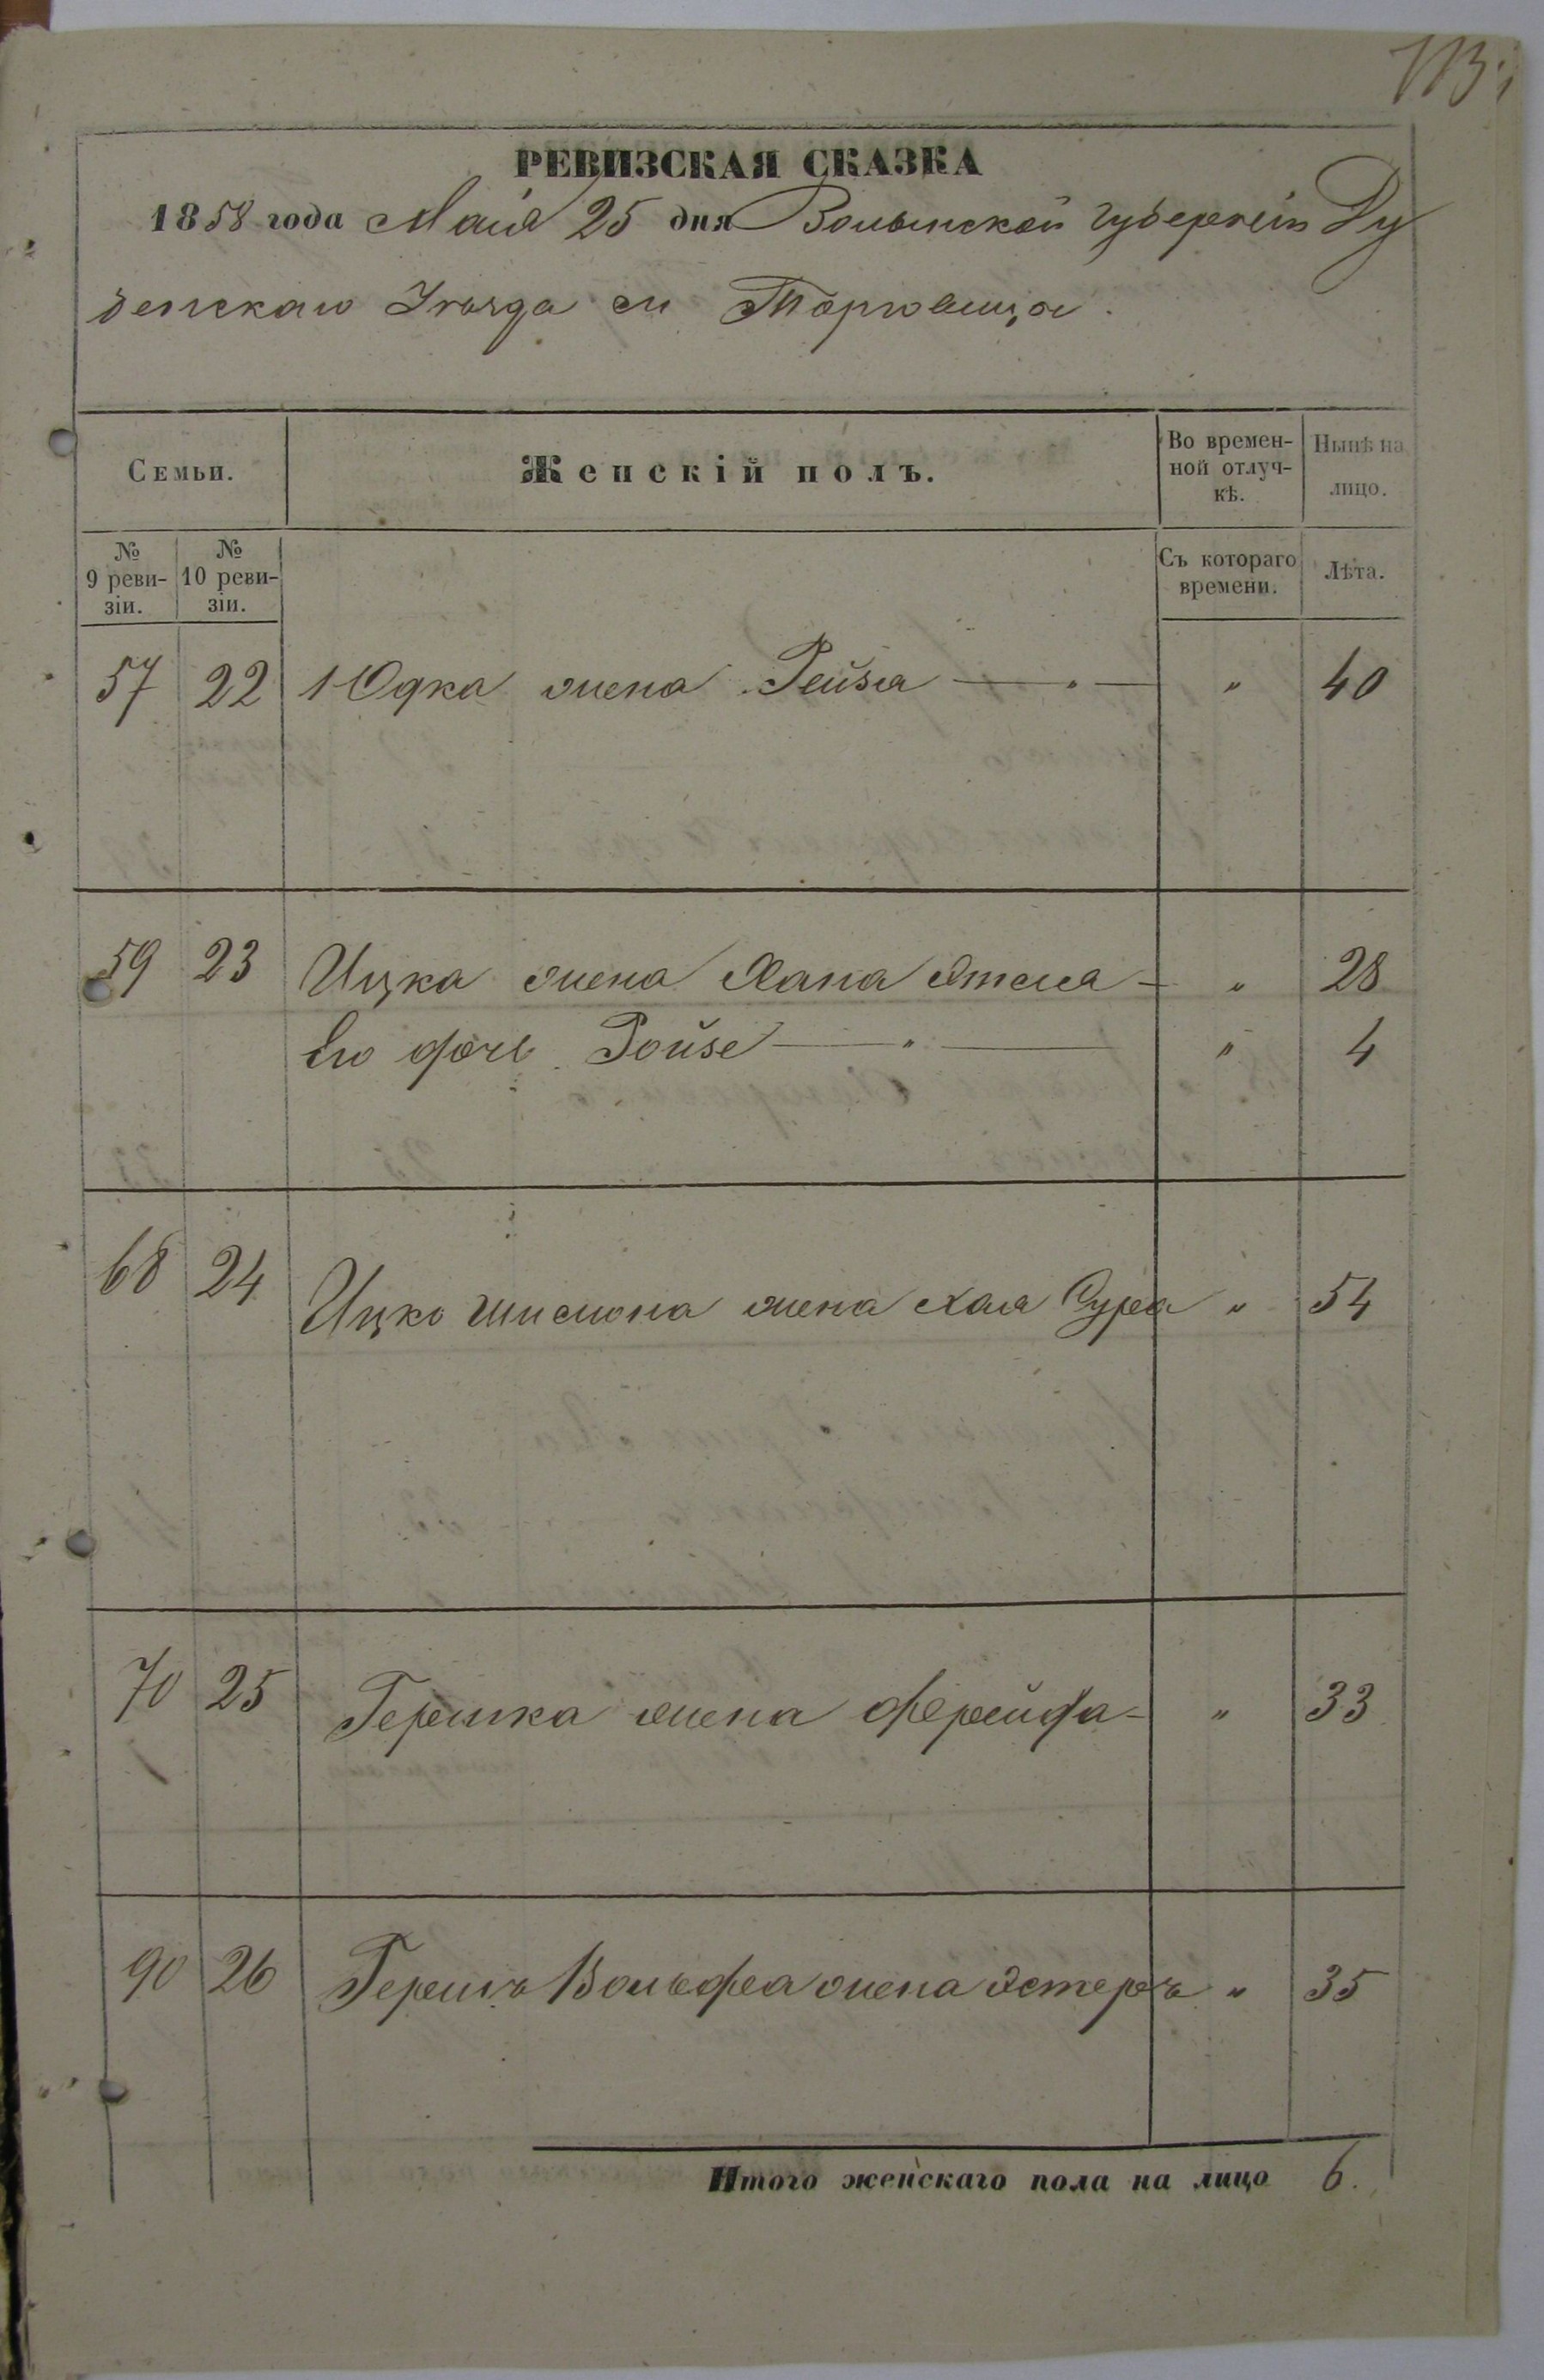 113
РЕВИЗСКАЯ СКАЗКА
1858 года Маія 25 дня Волынской губерніи Ду
бенскаго Уѣзда м Торговица.
Семьи.
Женскій полъ.
Во времен-
ной отлуч-
кѣ.
Нынѣ на
лицо.
№
9 реви-
зіи.
№
10 реви-
зіи.
Съ котораго
времени.
Лѣта.
57 22 Юдка жена Рейзя — " — " 40
59 23 Ицка жена Хана — " 28
Его дочь Ройзе — " — " 4
68 24 Ицко Шислиона жена Хая Сура " 54
70 25 Гершка жена Фрейда - " 33
90 26 Гершъ Вольфа жена Эстеръ " 35
Итого женскаго пола на лицо 6.